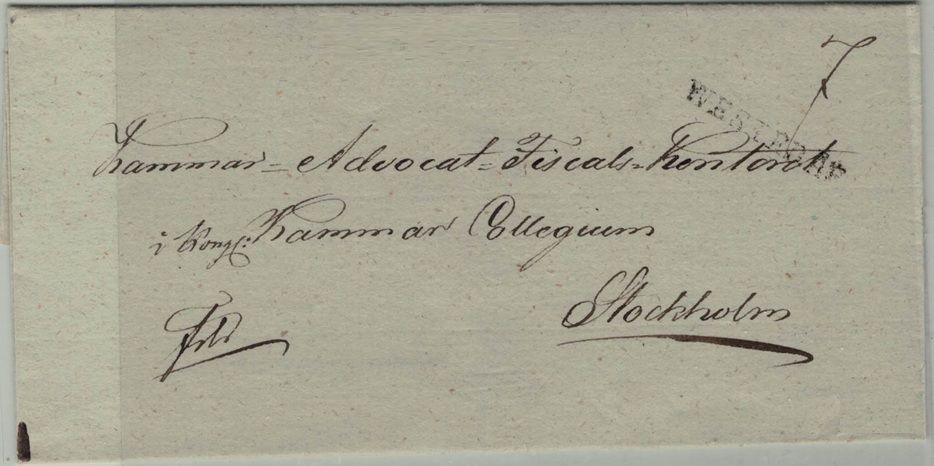 7
WESTERÅS
Kammar=Advocat=Fiscals=Kontoret
i Kongl: Kammar Collegium
Stockholm